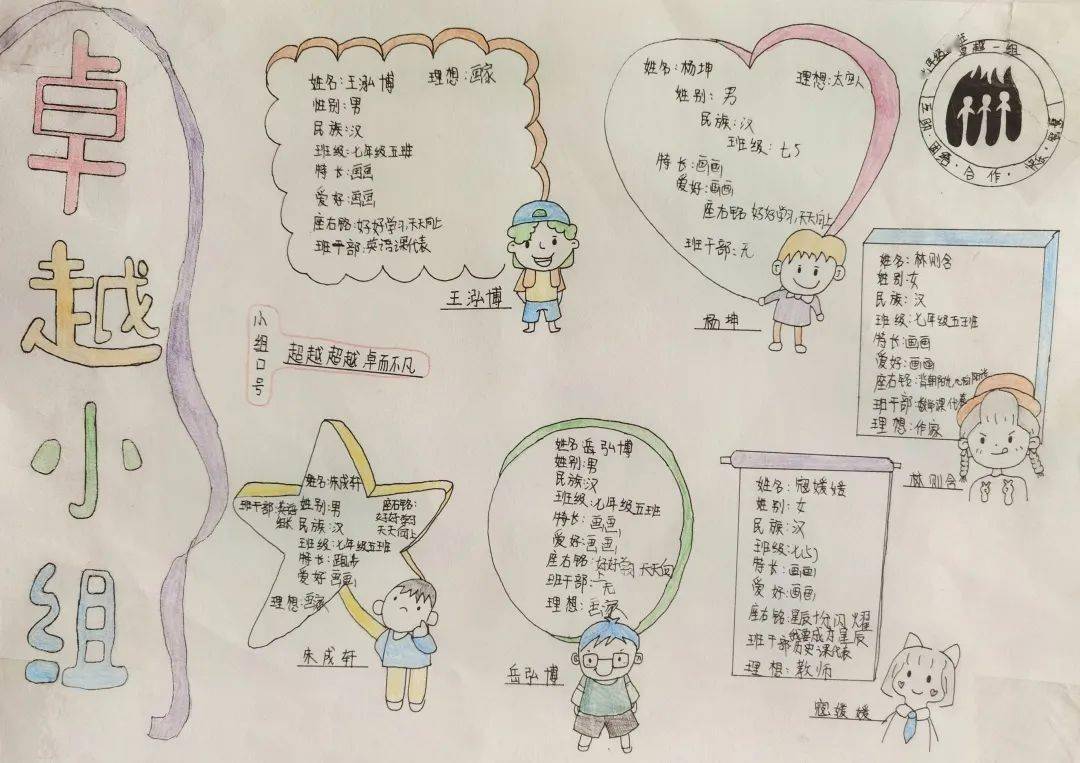 卓越小组
小组口号
超越超越卓而不凡
姓名:王泓博 理想:画家
性别:男
民族:汉
班级:七年级五班
特长:画画
爱好:画画
座右铭:好好学习,天天向上
班干部:英语课代表
王泓博
姓名:杨坤 理想:太空人
姓别:男
民族:汉
班级:七5
特长:画画
爱好:画画
座右铭:好好学习,天天向上
班干部:无
杨坤
卓越一组
团结·合作·
姓名:林则含
姓别:女
民族:汉
班级:七年级五班
特长:画画
爱好:画画
座右铭:背朝阳光
班干部:数学课代表
理想:作家
林则含
姓名:朱成轩
班干部:英语组长
姓别:男
座右铭:好好学习天天向上
民族:汉
班级:七年级五班
特长:
爱好:画画
理想:画家
朱成轩
姓名:岳弘博
姓别:男
民族:汉
班级:七年级五班
特长:画画
爱好:画画
座右铭:好好学习天天向上
班干部:无
理想:画家
岳弘博
姓名:寇媛媛
姓别:女
民族:汉
班级:七5
特长:画画
爱好:画画
座右铭:星辰十分闪耀
我要成为星辰
班干部:历史课代表
理想:教师
寇媛媛